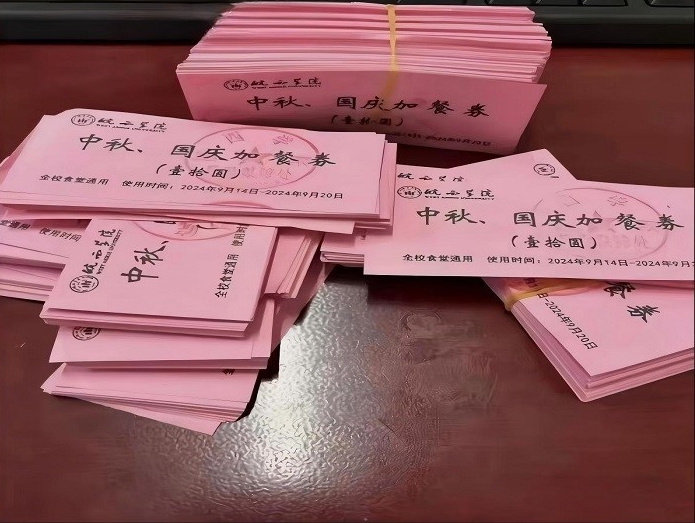 皖西学院
WEST ANHUI UNIVERSITY
中秋、国庆加餐券
(壹拾圆)
2024年9月20日
皖西学院
WEST ANHUI UNIVERSITY
中秋、国庆加餐券
(壹拾圆)
全校食堂通用 使用时间:2024年9月14日-2024年9月20日
皖西学院
皖西学院
中秋、国庆加餐券
(壹拾圆)
全校食堂通用 使用时间:2024年9月14日-2024年9月2
使用时间
皖西学院
WEST ANHUI UNIVERSITY
中秋、
全校食堂通用 使用
餐券
2024年9月20日